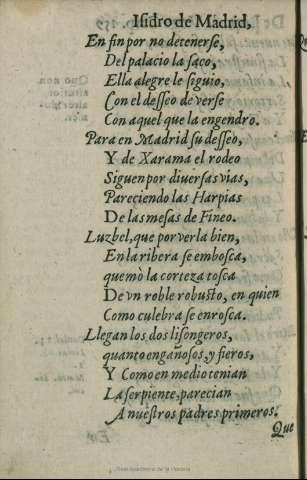 Isidro de Madrid,
En fin por no detenerse,
Del palacio la saco,
Ella alegre le siguio,
Con el desseo de verse
Con aquel que la engendro.
Para en Madrid su desseo,
Y de Xarama el rodeo
Siguen por diversas vias,
Pareciendo las Harpias
De las mesas de Fineo.
Luzbel, que por verla bien,
En la ribera se embosca,
quemò la corteza tosca
De vn roble robusto, en quien
Como culebra se enrosca.
Llegan los dos lisongeros,
quanto engañosos, y fieros,
Y Como en medio tenian
La serpiente, parecian
A nuestros padres primeros.
Que